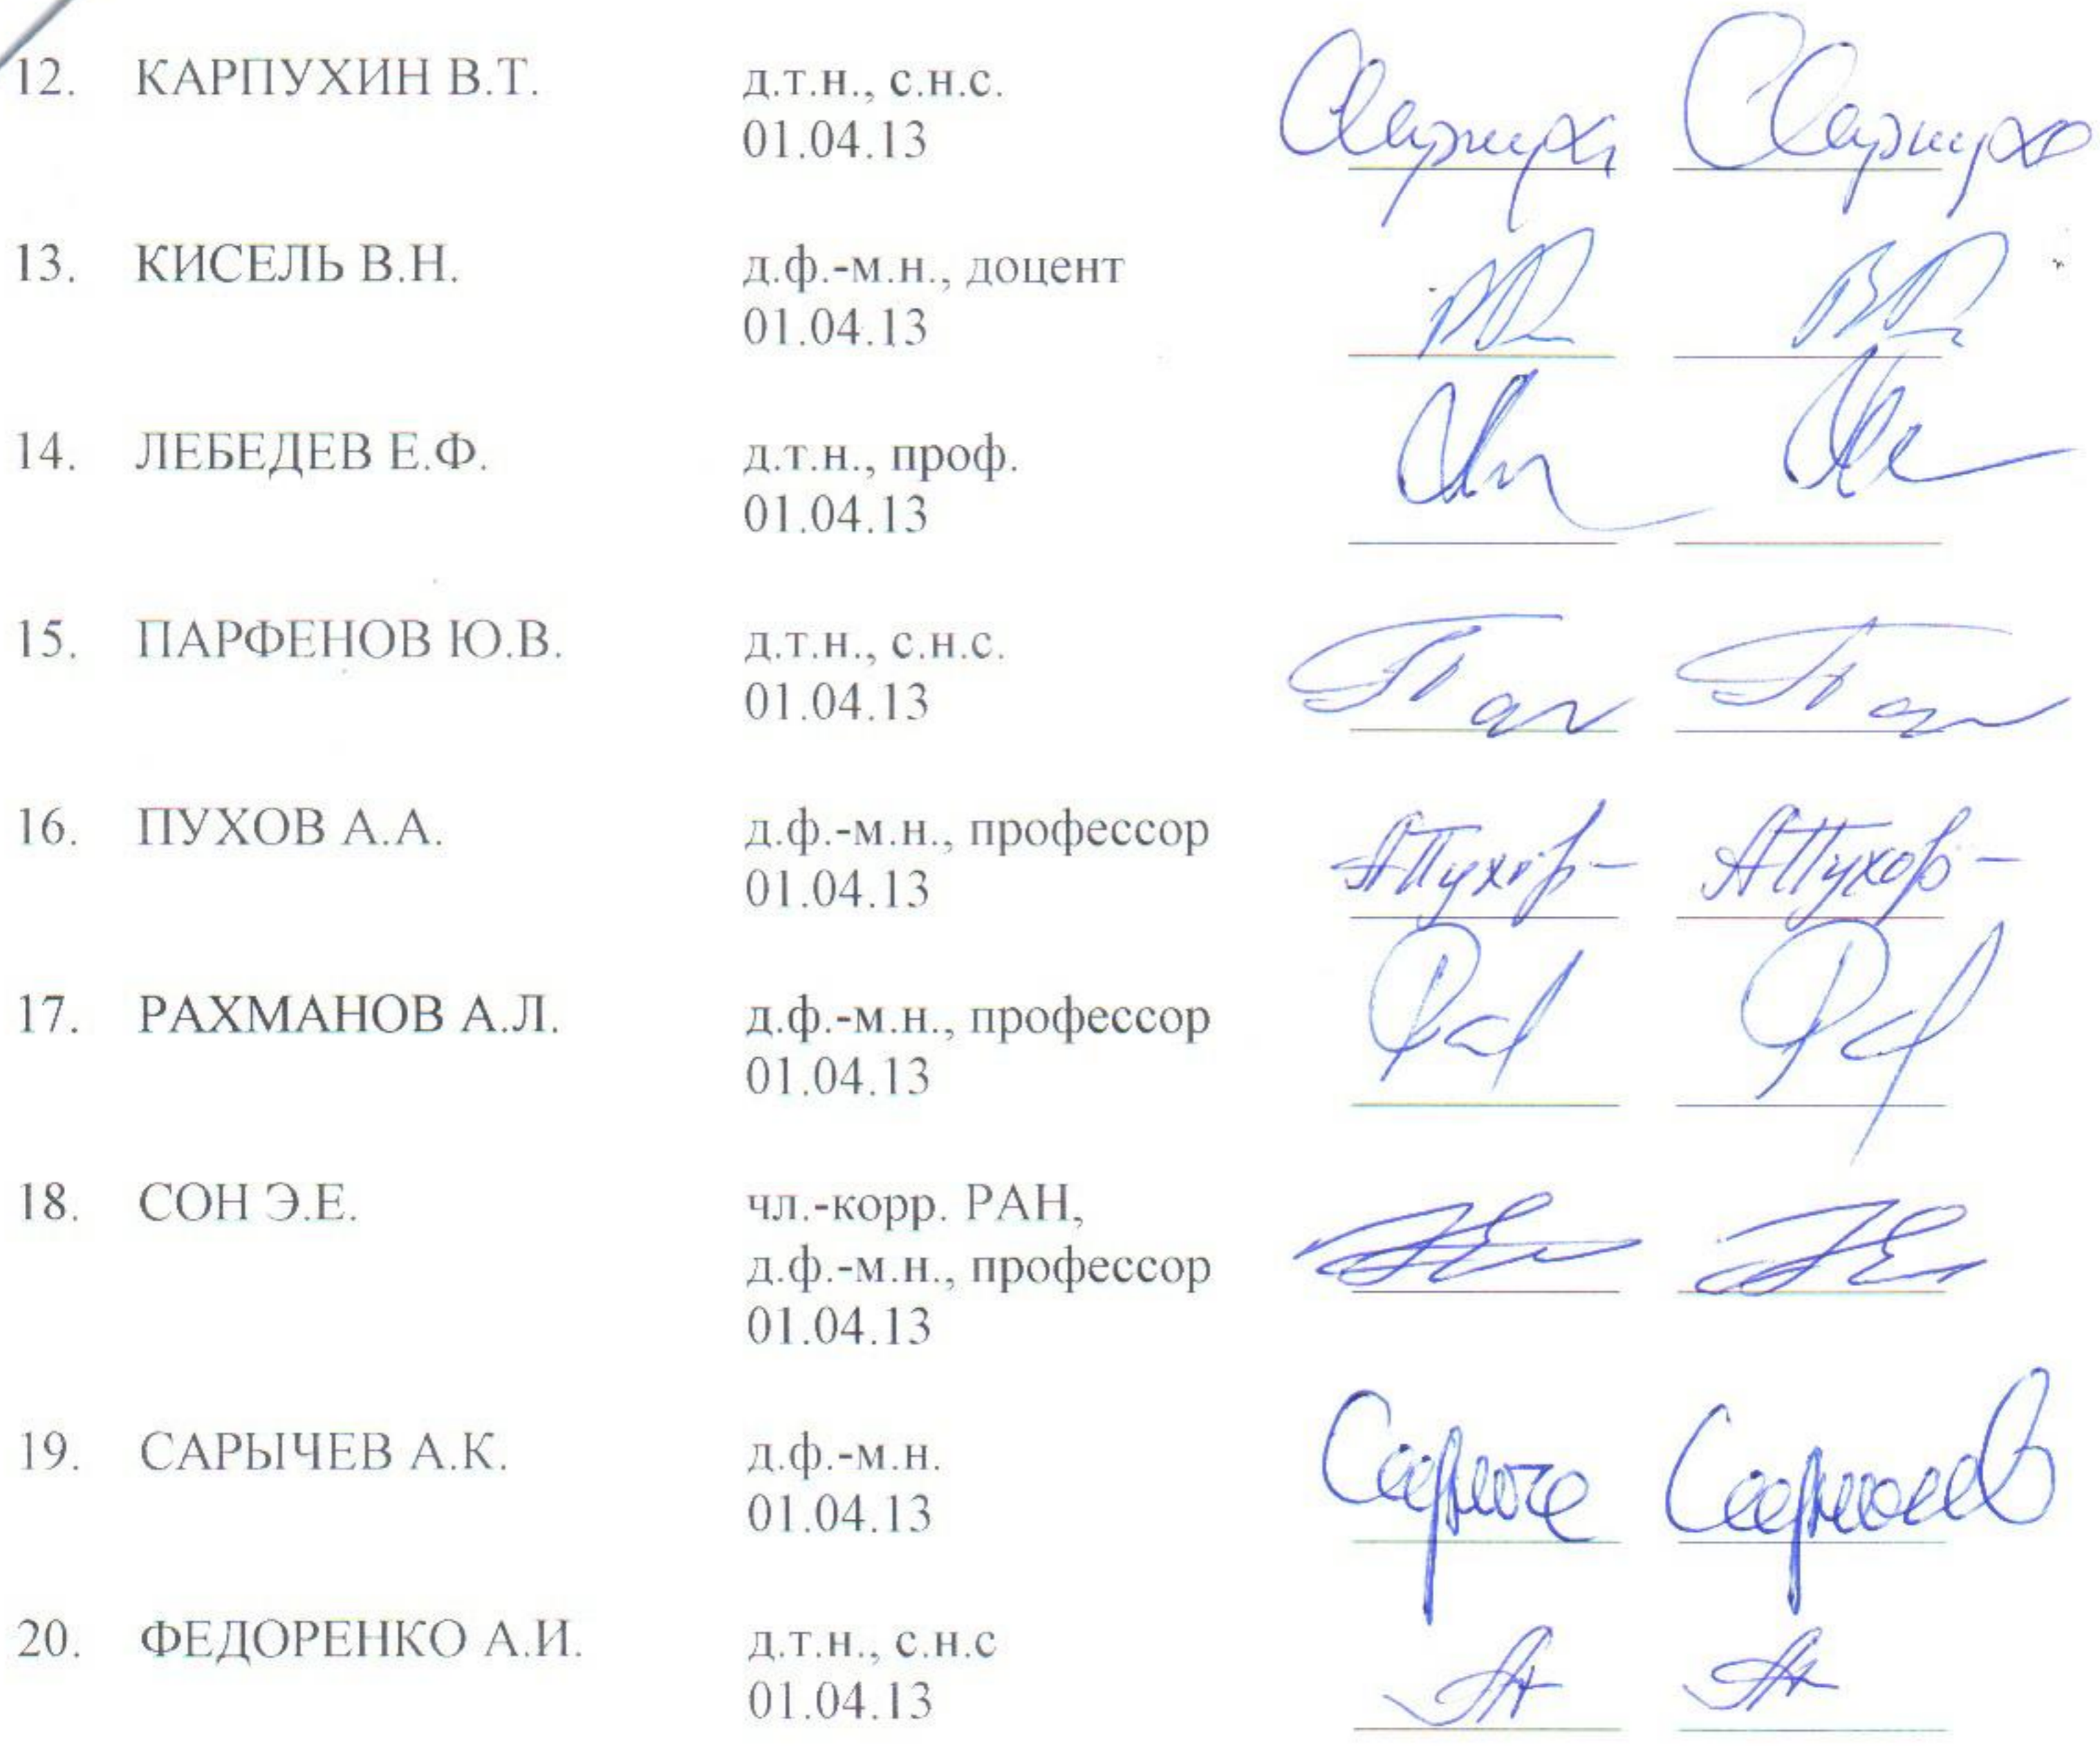 12. КАРПУХИН В.Т. д.т.н., с.н.с.
01.04.13
13. КИСЕЛЬ В.Н. д.ф.-м.н., доцент
01.04.13
14. ЛЕБЕДЕВ Е.Ф. д.т.н., проф.
01.04.13
15. ПАРФЕНОВ Ю.В. д.т.н., с.н.с.
01.04.13
16. ПУХОВ А.А. д.ф.-м.н., профессор АПухов АПухов
01.04.13
17. РАХМАНОВ А.Л. д.ф.-м.н., профессор
01.04.13
18. СОН Э.Е. чл.-корр. РАН,
д.ф.-м.н., профессор
01.04.13
19. САРЫЧЕВ А.К. д.ф.-м.н.
01.04.13
20. ФЕДОРЕНКО А.И. д.т.н., с.н.с
01.04.13